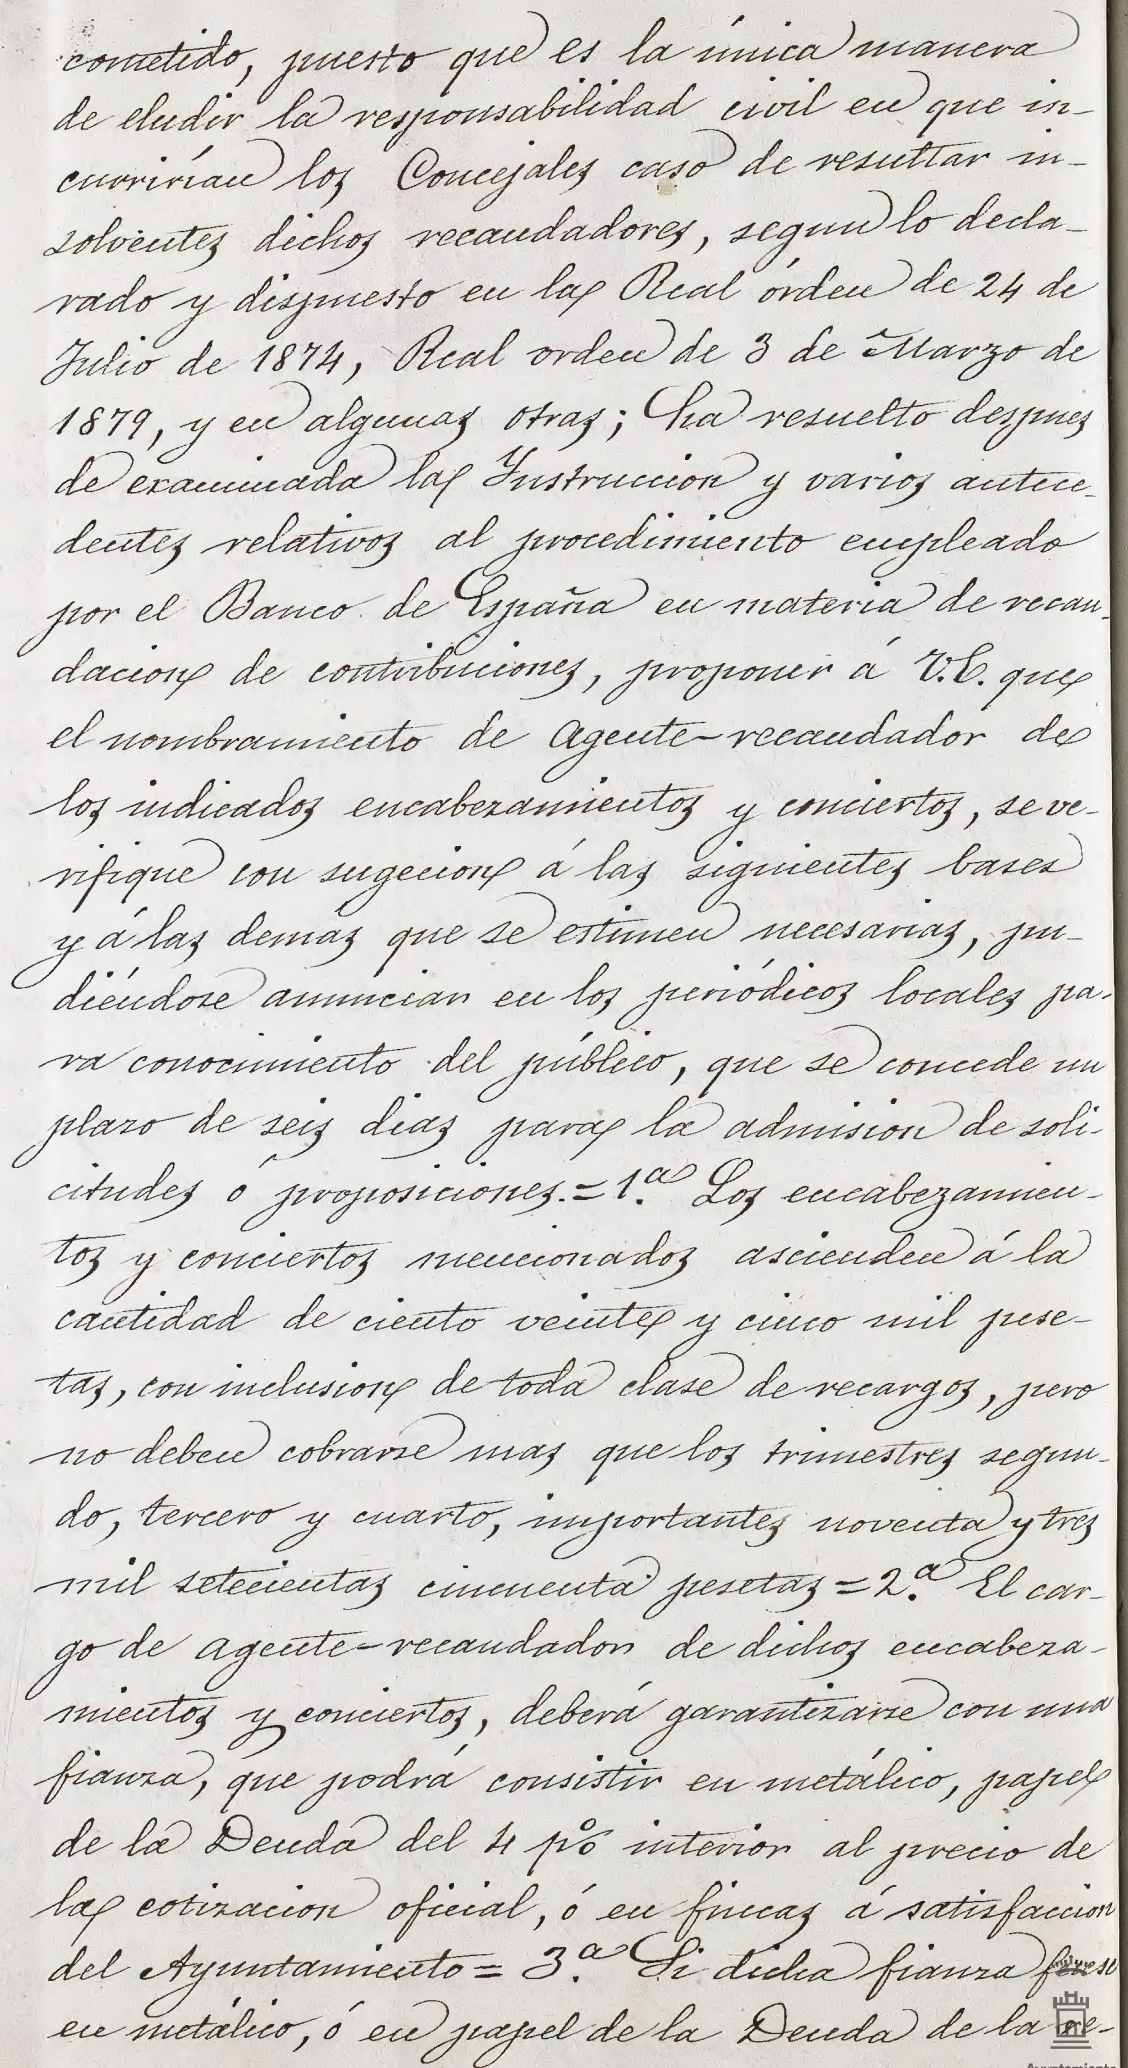 cometido, puesto que es la única manera
de eludir la responsabilidad civil en que in-
currirían los Concejales caso de resultar in-
solventes dichos recaudadores, segun lo decla-
rado y dispuesto en la Real órden de 24 de
Julio de 1874, Real orden de 3 de Marzo de
1879, y en algunas otras; ha resuelto despues
de examinada la Instruccion y varios antece-
dentes relativos al procedimiento empleado
por el Banco de España en materia de recau-
dacion de contribuciones, proponer á V.E. que
el nombramiento de Agente-recaudador de
los indicados encabezamientos y conciertos, se ve-
rifique con sugecion á las siguientes bases
y á las demas que se estimen necesarias, pu-
diéndose anunciar en los periódicos locales pa-
ra conocimiento del público, que se concede un
plazo de seis dias para la admision de soli-
citudes ó proposiciones.=1.ª Los encabezamien-
tos y conciertos mencionados ascienden á la
cantidad de ciento veinte y cinco mil pese-
tas, con inclusion de toda clase de recargos, pero
no deben cobrarse mas que los trimestres segun-
do, tercero y cuarto, importantes noventa y tres
mil setecientas cincuenta pesetas=2.ª El car-
go de agente-recaudador de dichos encabeza-
mientos y conciertos, deberá garantizarse con una
fianza, que podrá consistir en metálico, papel
de la Deuda del 4 p% interior al precio de
la cotizacion oficial, ó en fincas á satisfaccion
del Ayuntamiento=3.ª Si dicha fianza fuese
en metálico, ó en papel de la Deuda de la re-
Ayuntamiento